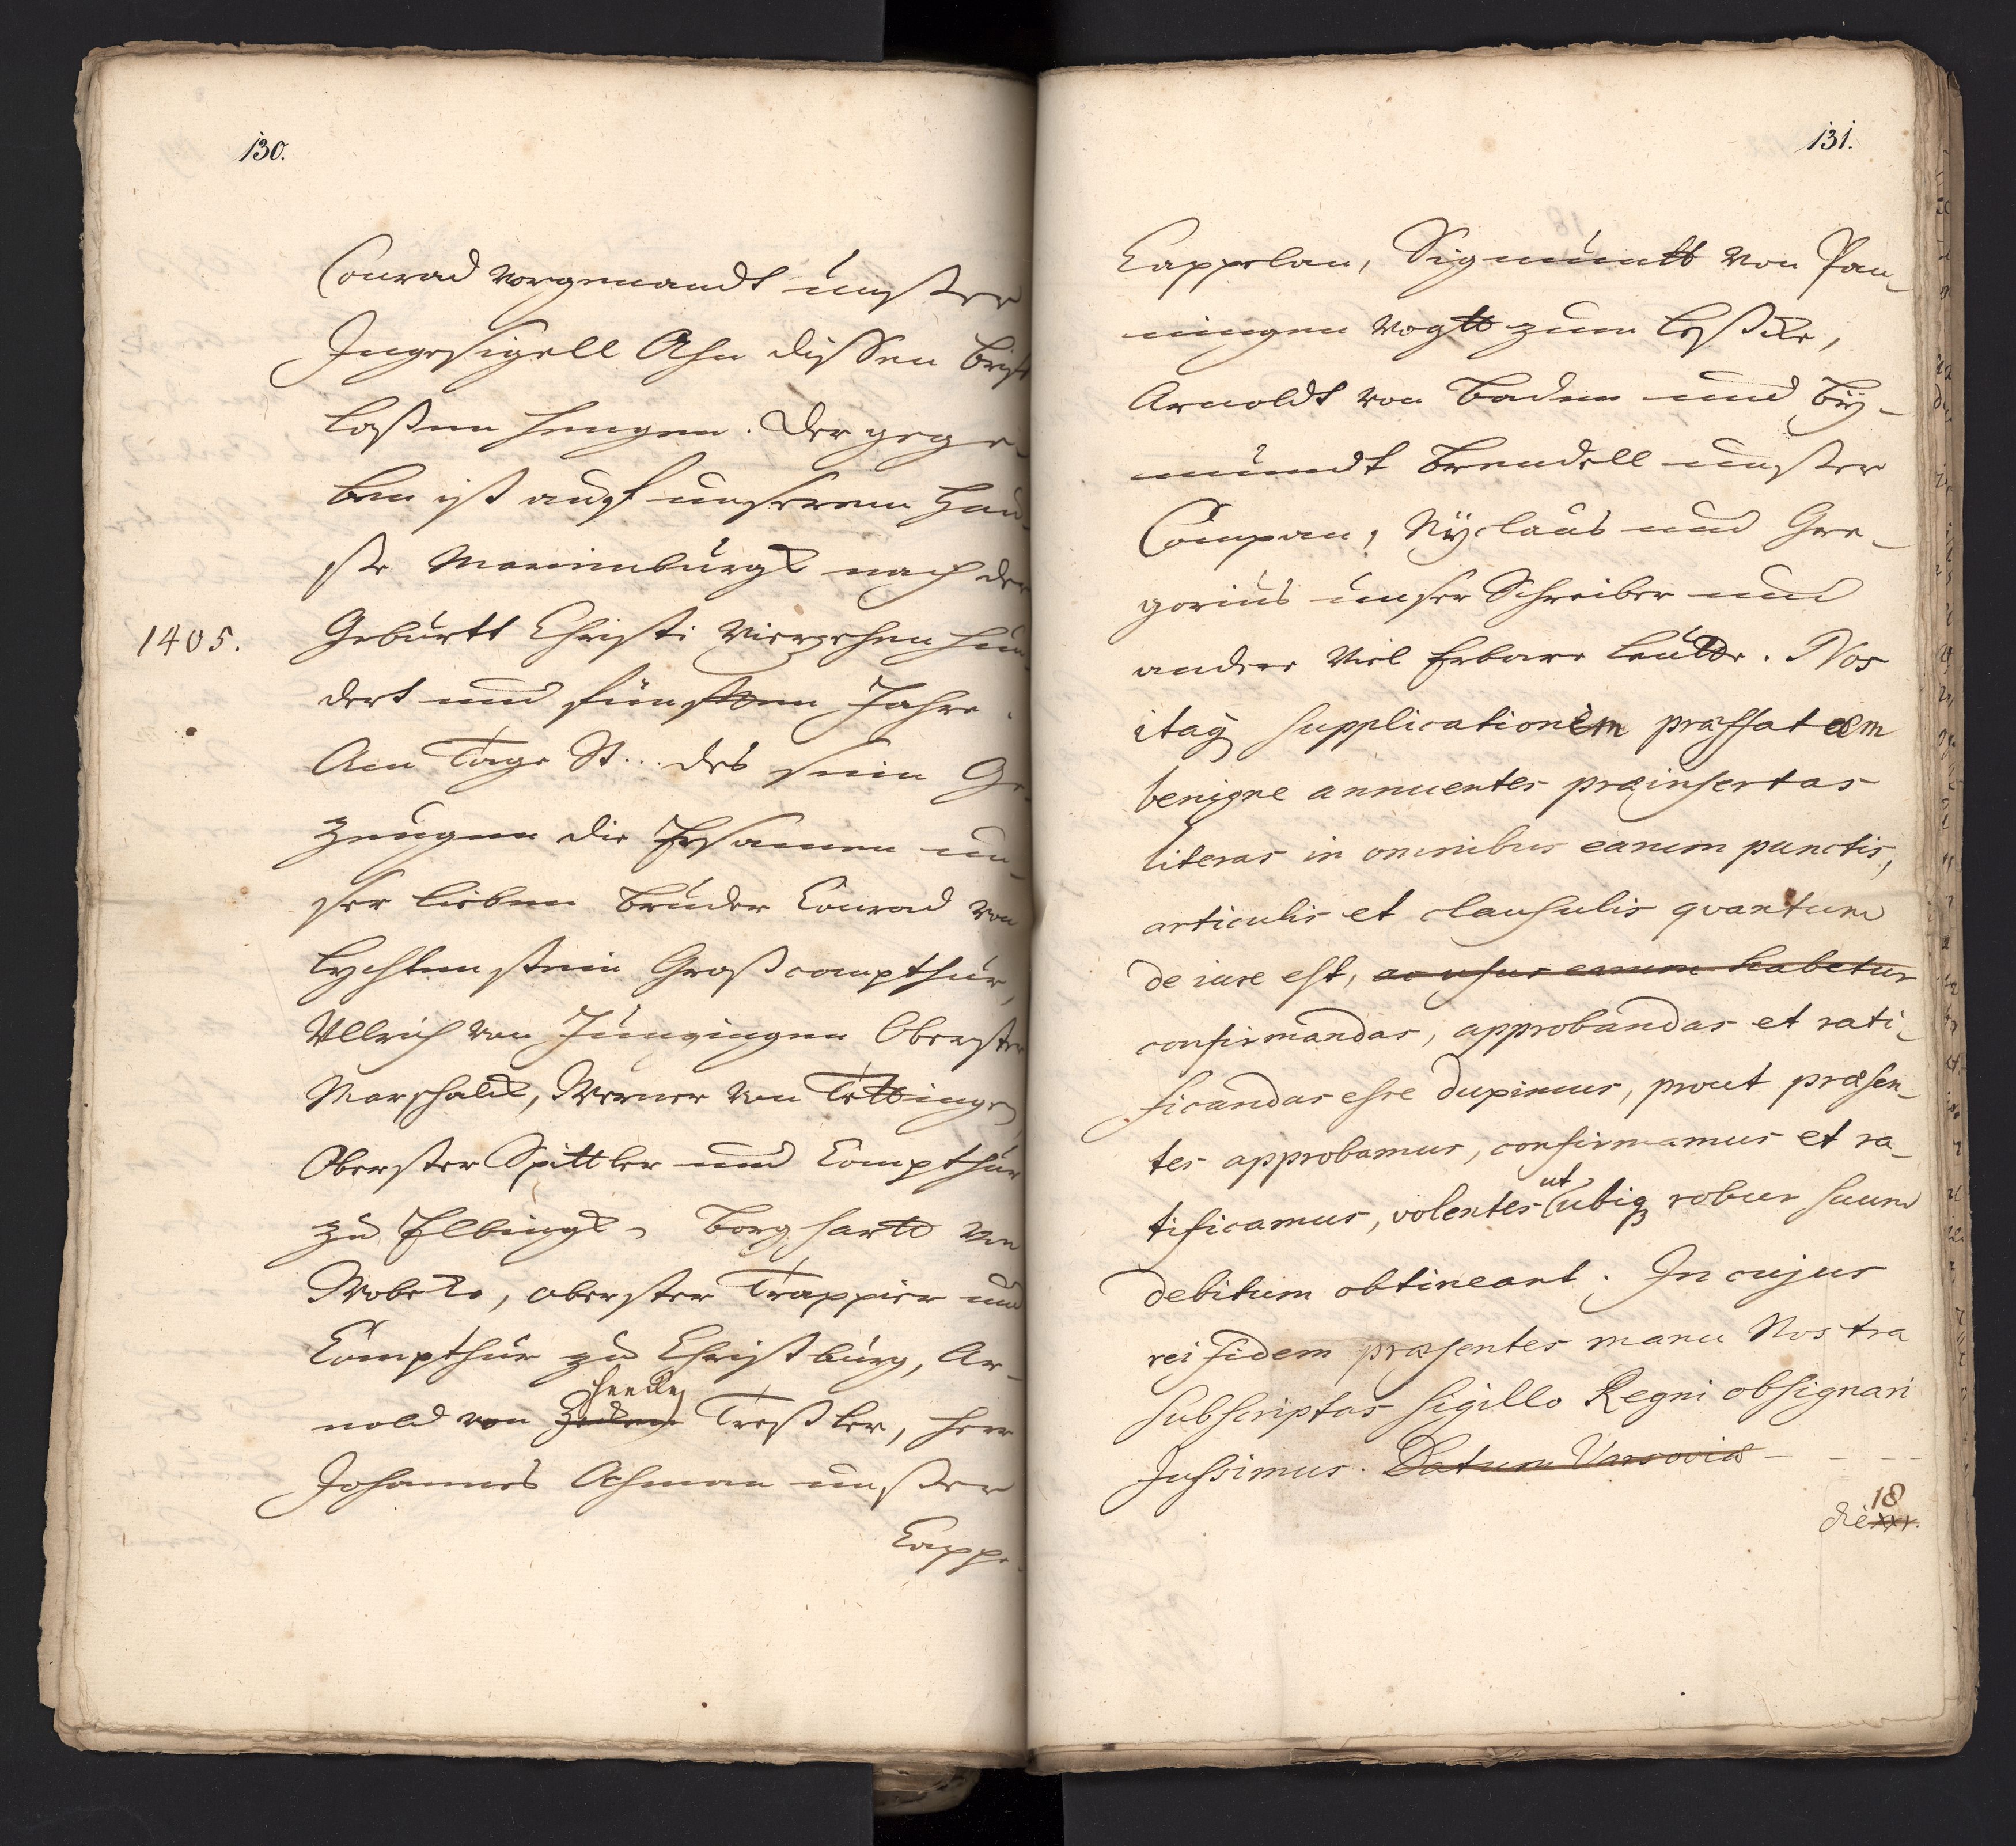 130.
Conrad vorgenandt unßer
Ingesigell Ahn dissen brif
laßen hengen. Der gege-
ben ist auff unserem Hau-
ße Marienburgk nach der
1405.
Geburtt Christi Vierzehen hun-
dert und fünfften Jahre.
Am Tage St... des sein Ge-
zeugen die Ersamen un-
ser lieben Brüder Conrad von
Lychtenstein Großcompthur,
Ullrich von Jungingen Oberster
Marschalk, Werner von Tettingen
Oberster Spittler und Compthur
zu Elbingk, Borghartt von
Wobeke, oberster Trappier und
Compthur zu Christburg, Ar-
nold von Treßler, Herr
Johannes Ahman unßer
Cappe-
131.
Cappelan, Sigmuntt von Pan-
ningen Vogtt zum Leßcke,
Arnoldt von Baden und By-
mundt Brendell unßer
Compan, Nyclaus und Gre-
gorius unser Schreiber und
andere Viel Erbare leutte. Nos
itaq supplicationem præfatam
benigne annuentes præinsertas
literas in omnibus earum punctis,
articulis et clausulis quantum
de iure est, ac usus earum habetur
confirmandas, approbandas et rati-
ficandas esse duximus, prout præsen-
tes approbamus, confirmamus et ra-
tificamus, volentes ut ubiq robur suum
debitum obtineant. In cujus
rei fidem præsentes manu Nostra
subscriptas sigillo Regni obsignari
jussimus. Datum Varsoviæ - - -
18
die